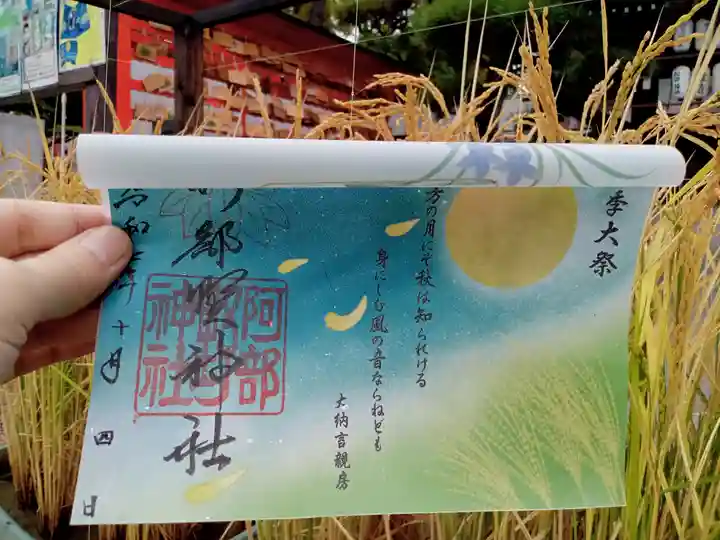 季大祭
方の月にぞ秋は知られける
身にしむ風の音ならねども
大納言親房
部野神社
阿部野神社
十月四日